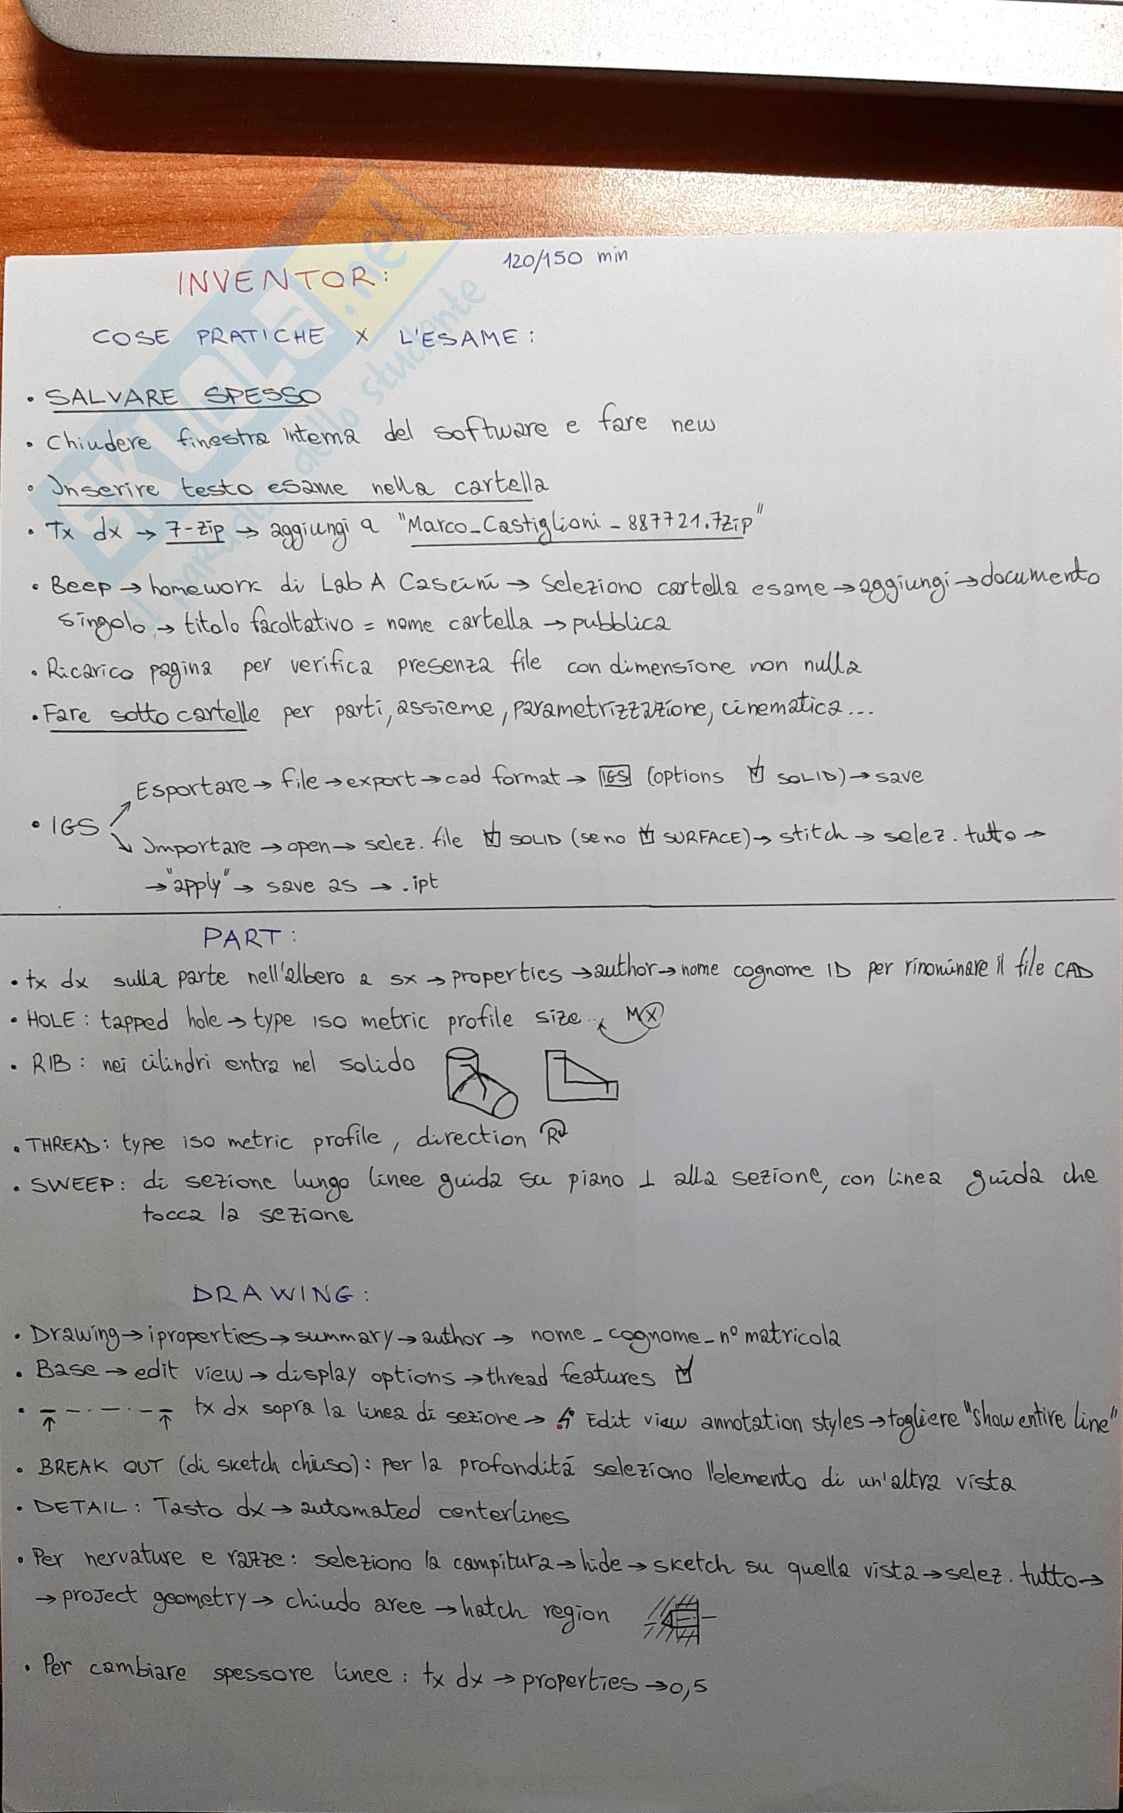 120/150 min
INVENTOR:
COSE PRATICHE X L'ESAME:
• SALVARE SPESSO
• Chiudere finestra interna del software e fare new
• Inserire testo esame nella cartella
• Tx dx → 7-zip → aggiungi a "Marco_Castiglioni_887721.7zip"
• Beep → homework di Lab A Cascini → Seleziono cartella esame → aggiungi → documento
singolo → titolo facoltativo = nome cartella → pubblica
• Ricarico pagina per verifica presenza file con dimensione non nulla
• Fare sotto cartelle per parti, assieme, parametrizzazione, cinematica...
Esportare → file → export → cad format → IGS (options ☑ SOLID) → save
• IGS
Importare → open → selez. file ☑ SOLID (se no ☑ SURFACE) → stitch → selez. tutto →
→ "apply" → save as → .ipt
PART:
• tx dx sulla parte nell'albero a sx → properties → author → nome cognome ID per rinominare il file CAD
• HOLE: tapped hole → type iso metric profile size... MX
• RIB: nei cilindri entra nel solido
• THREAD: type iso metric profile, direction R
• SWEEP: di sezione lungo linee guida su piano ⊥ alla sezione, con linea guida che
tocca la sezione
DRAWING:
• Drawing → iproperties → summary → author → nome_cognome_n° matricola
• Base → edit view → display options → thread features ☑
• tx dx sopra la linea di sezione → Edit view annotation styles → togliere "Show entire line"
• BREAK OUT (di sketch chiuso): per la profondità seleziono l'elemento di un'altra vista
• DETAIL: Tasto dx → automated centerlines
• Per nervature e razze: seleziono la campitura → hide → sketch su quella vista → selez. tutto →
→ project geometry → chiudo aree → hatch region
• Per cambiare spessore linee: tx dx → properties → 0,5
SKUOLA.net
dello studente